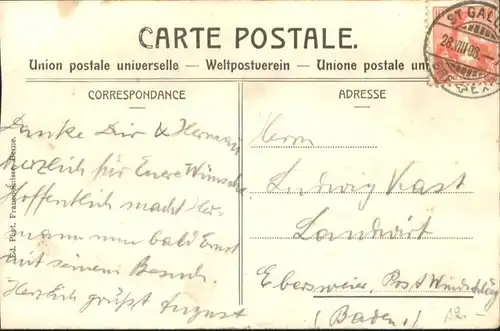 CARTE POSTALE.
Union postale universelle – Weltpostverein – Unione postale uni
ST GALL
28.VIII.09.
CORRESPONDANCE
ADRESSE
Danke Dir & Herman
herzlich für Euere Wünsche
Hoffentlich macht Her
mann nun bald Ernst
mit seinem Besuch.
Herzlich grüßt August
Herrn
Ludwig Kast
Landwirt
Ebersweier, Post Windschläg
(Baden.)
12.-
Ed. Phot. Franco-Suisse, Berne.